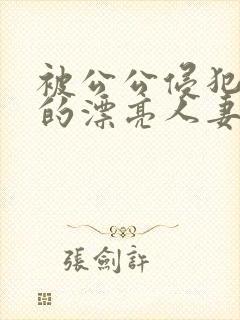 被公公侵犯
的漂亮人妻
張劍許